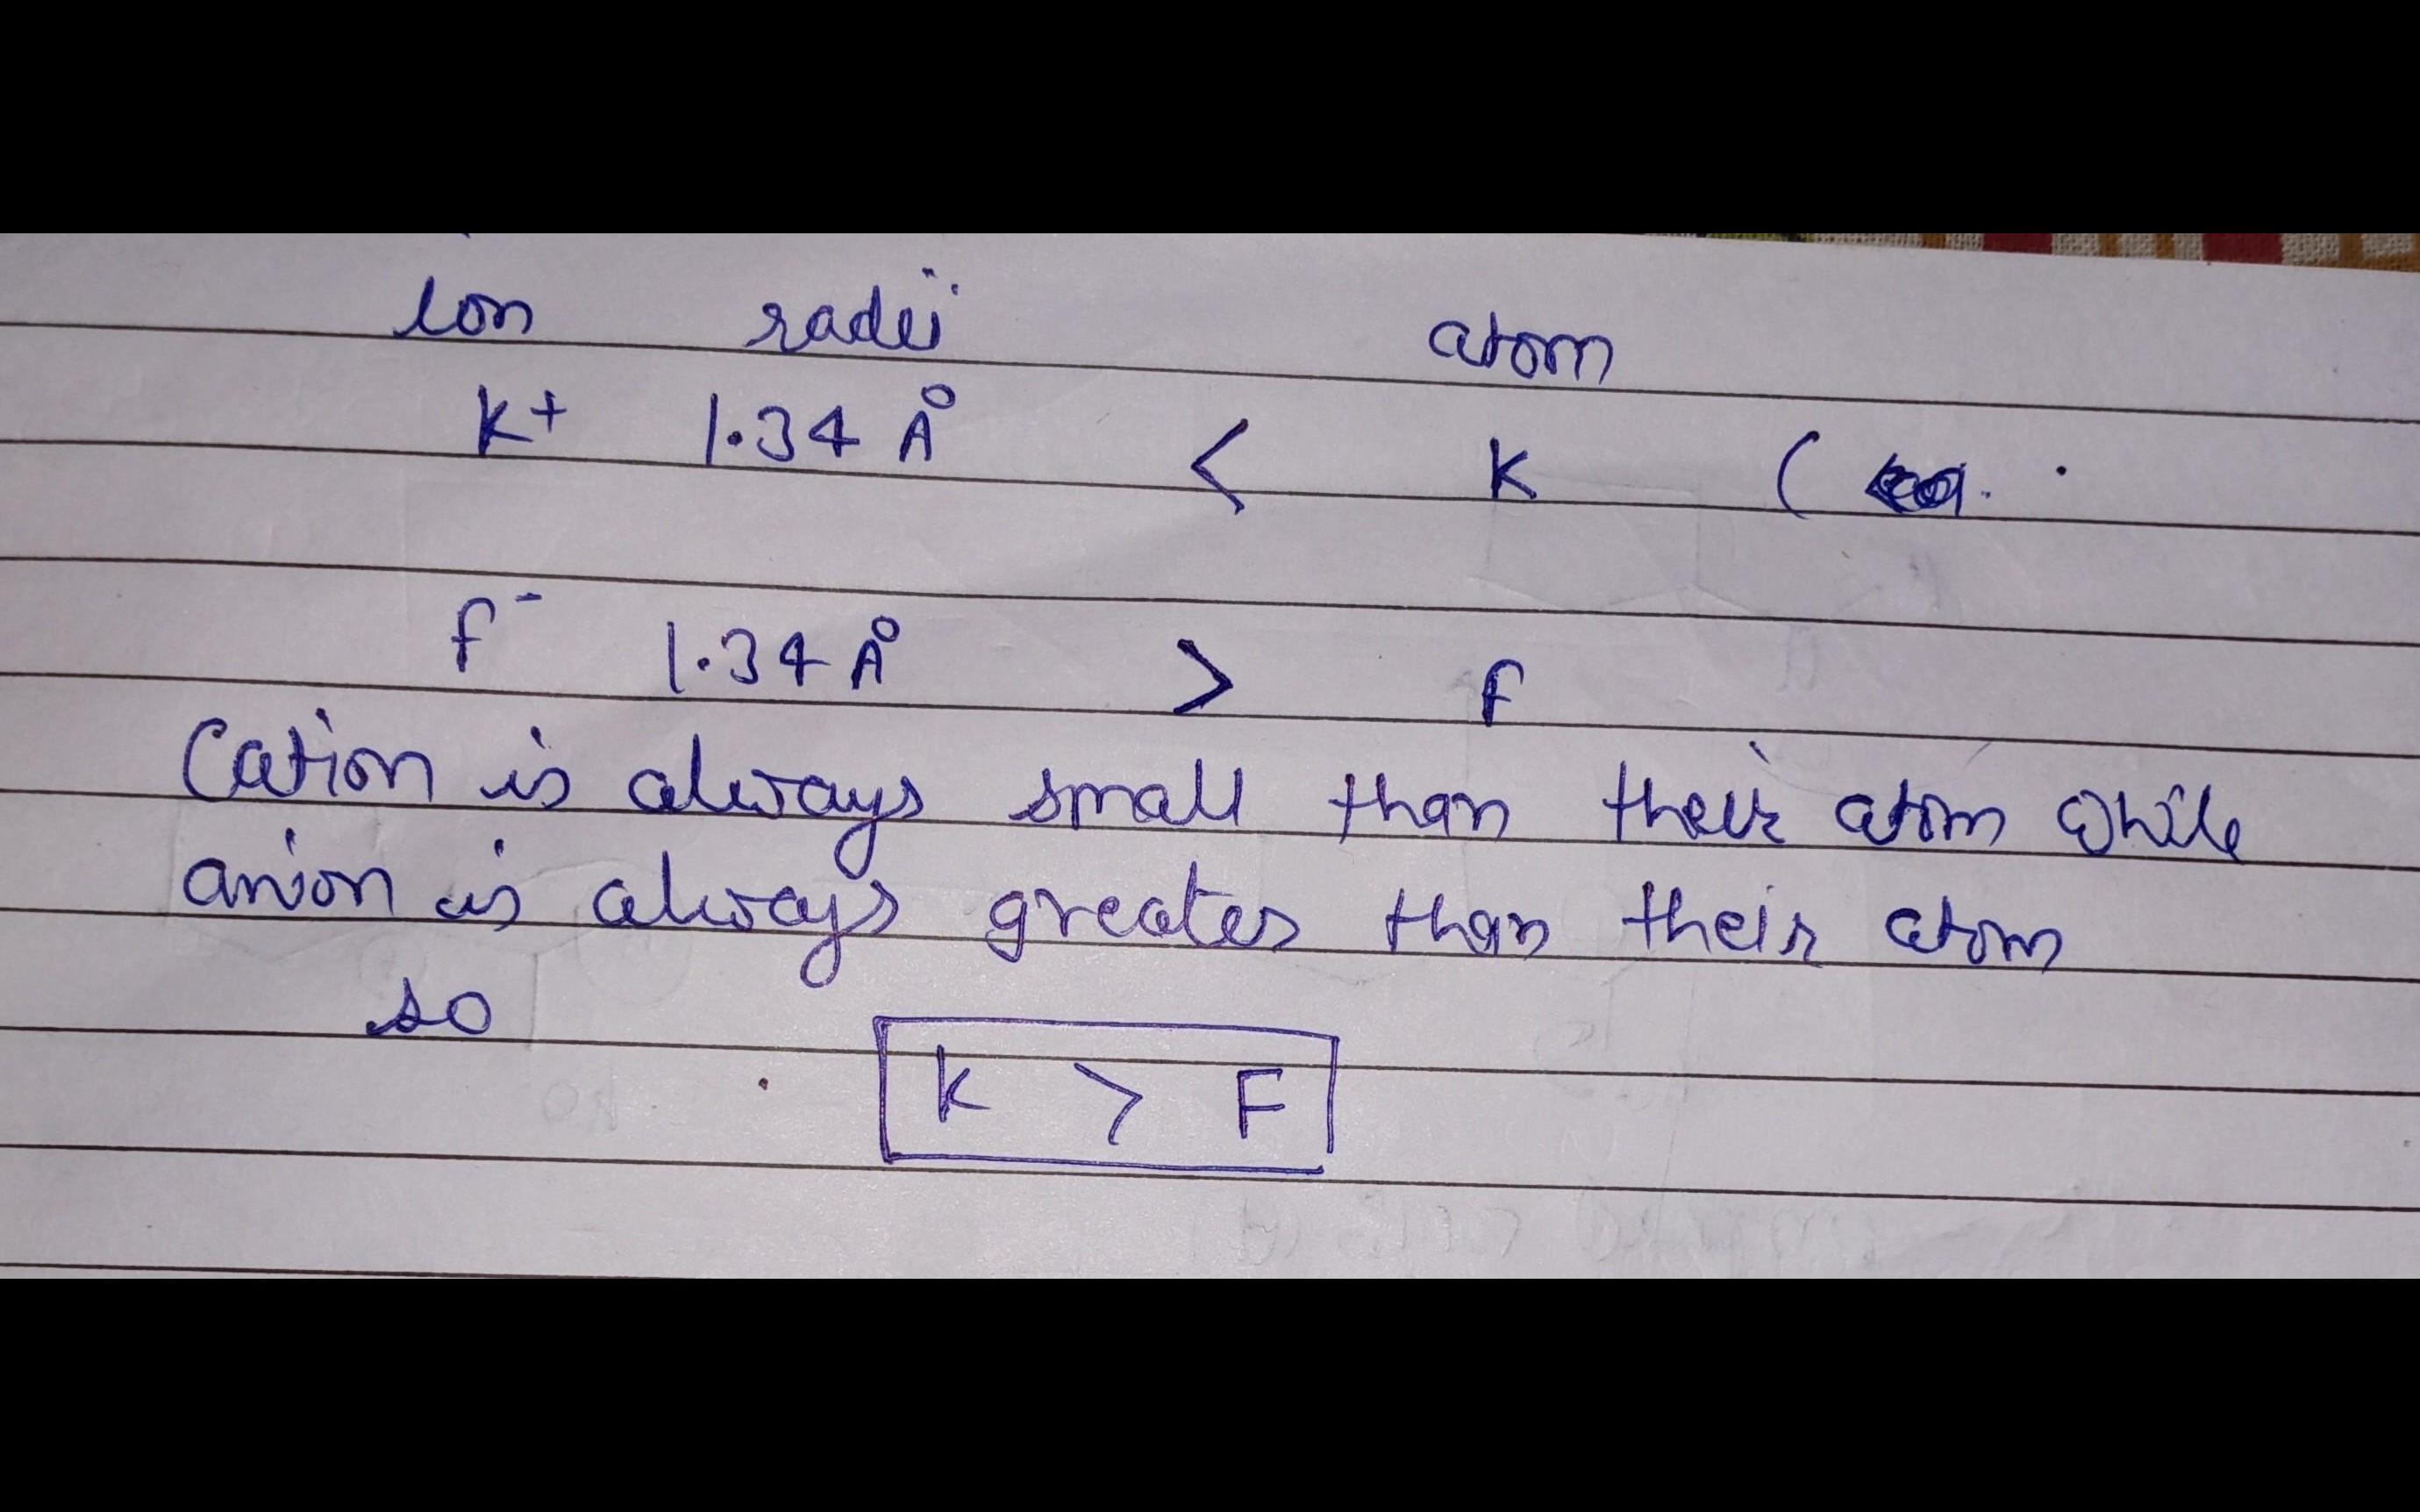 Ion radii atom
K+ 1.34 A° < K (
F- 1.34 A° > F
Cation is always small than their atom while
anion is always greater than their atom
so
K > F